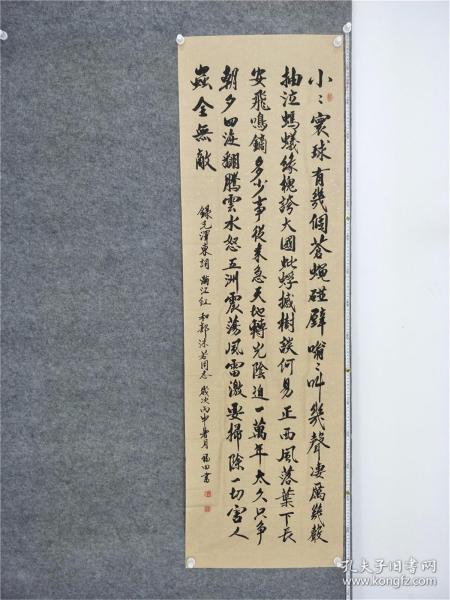 小々寰球有幾個蒼蠅碰壁嗡々叫幾聲凄厲幾聲
抽泣螞蟻緣槐誇大國蚍蜉撼樹談何易正西風落葉下長
安飛鳴鏑多少事從來急天地轉光陰迫一萬年太久只争
朝夕四海翻騰雲水怒五洲震蕩風雷激要掃除一切害人
蟲全無敵
錄毛澤東詞滿江紅和郭沫若同志歲次丙申暑月田書
孔夫子旧书网
www.kongfz.com